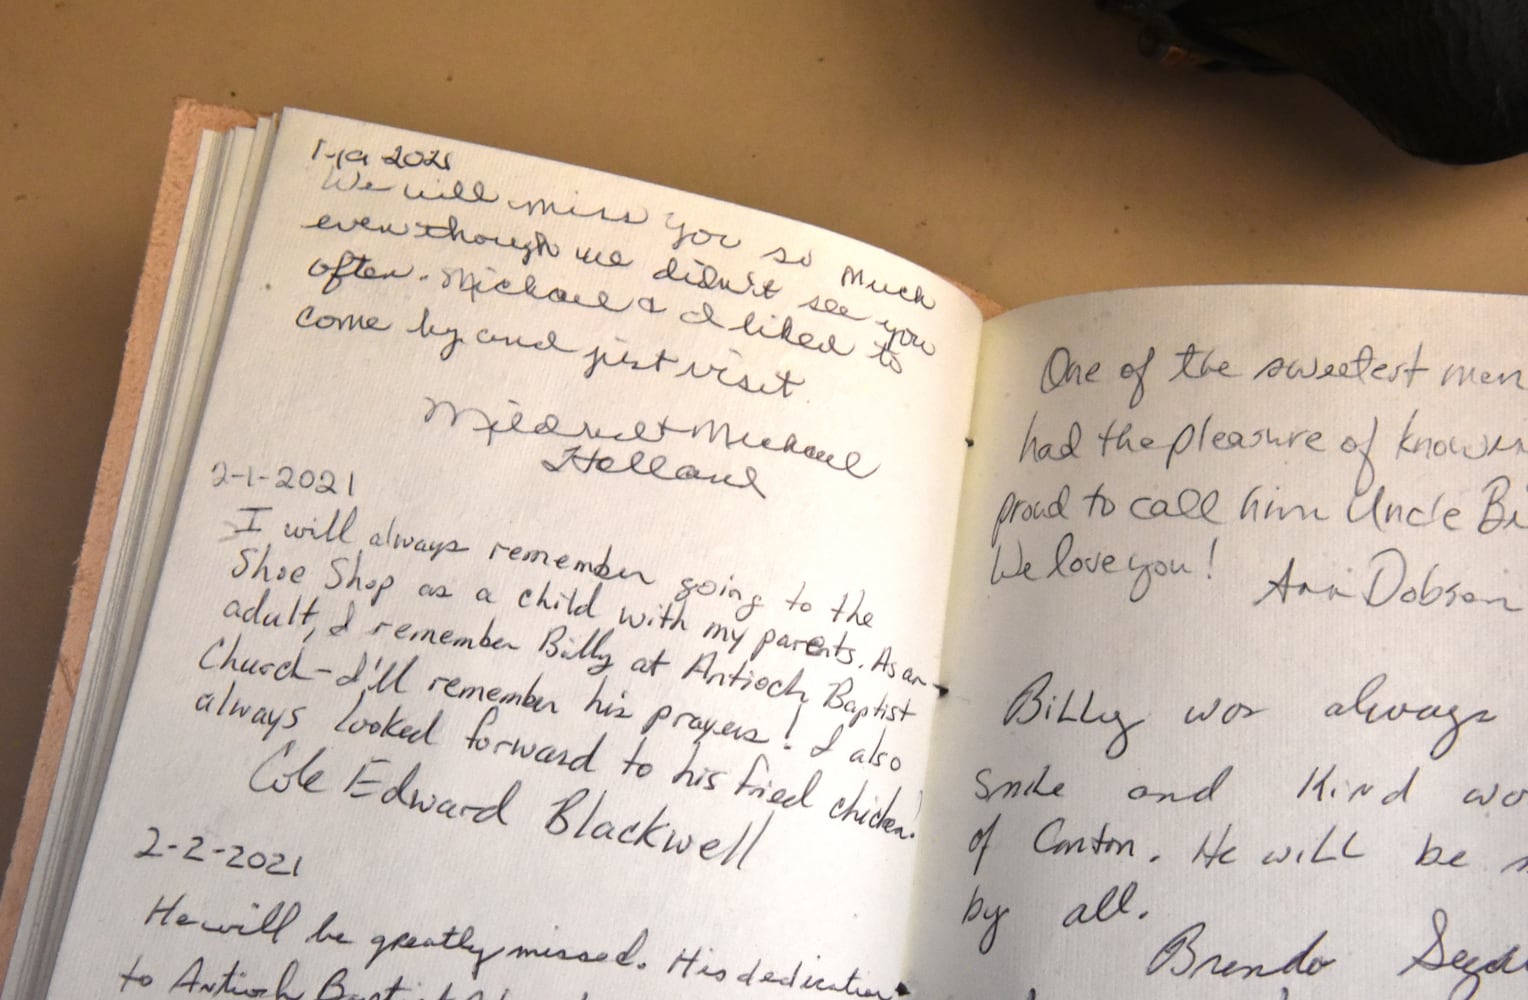 2021
We will miss you so much
even though we didn't see you
often. Michael & I liked to
come by and just visit.
Mildred + Michael
Holland
2-1-2021
I will always remember going to the
Shoe Shop as a child with my parents. As an
adult, I remember Billy at Antioch Baptist
Church - I'll remember his prayers! I also
always looked forward to his fried chicken!
Cole Edward Blackwell
2-2-2021
He will be greatly missed. His dedication
to Antioch Baptist
One of the sweetest men
had the pleasure of
proud to call him Uncle Bi
We love you!
Ann Dobson
Billy was always
smile and kind wo
of Canton. He will be
by all.
Brenda